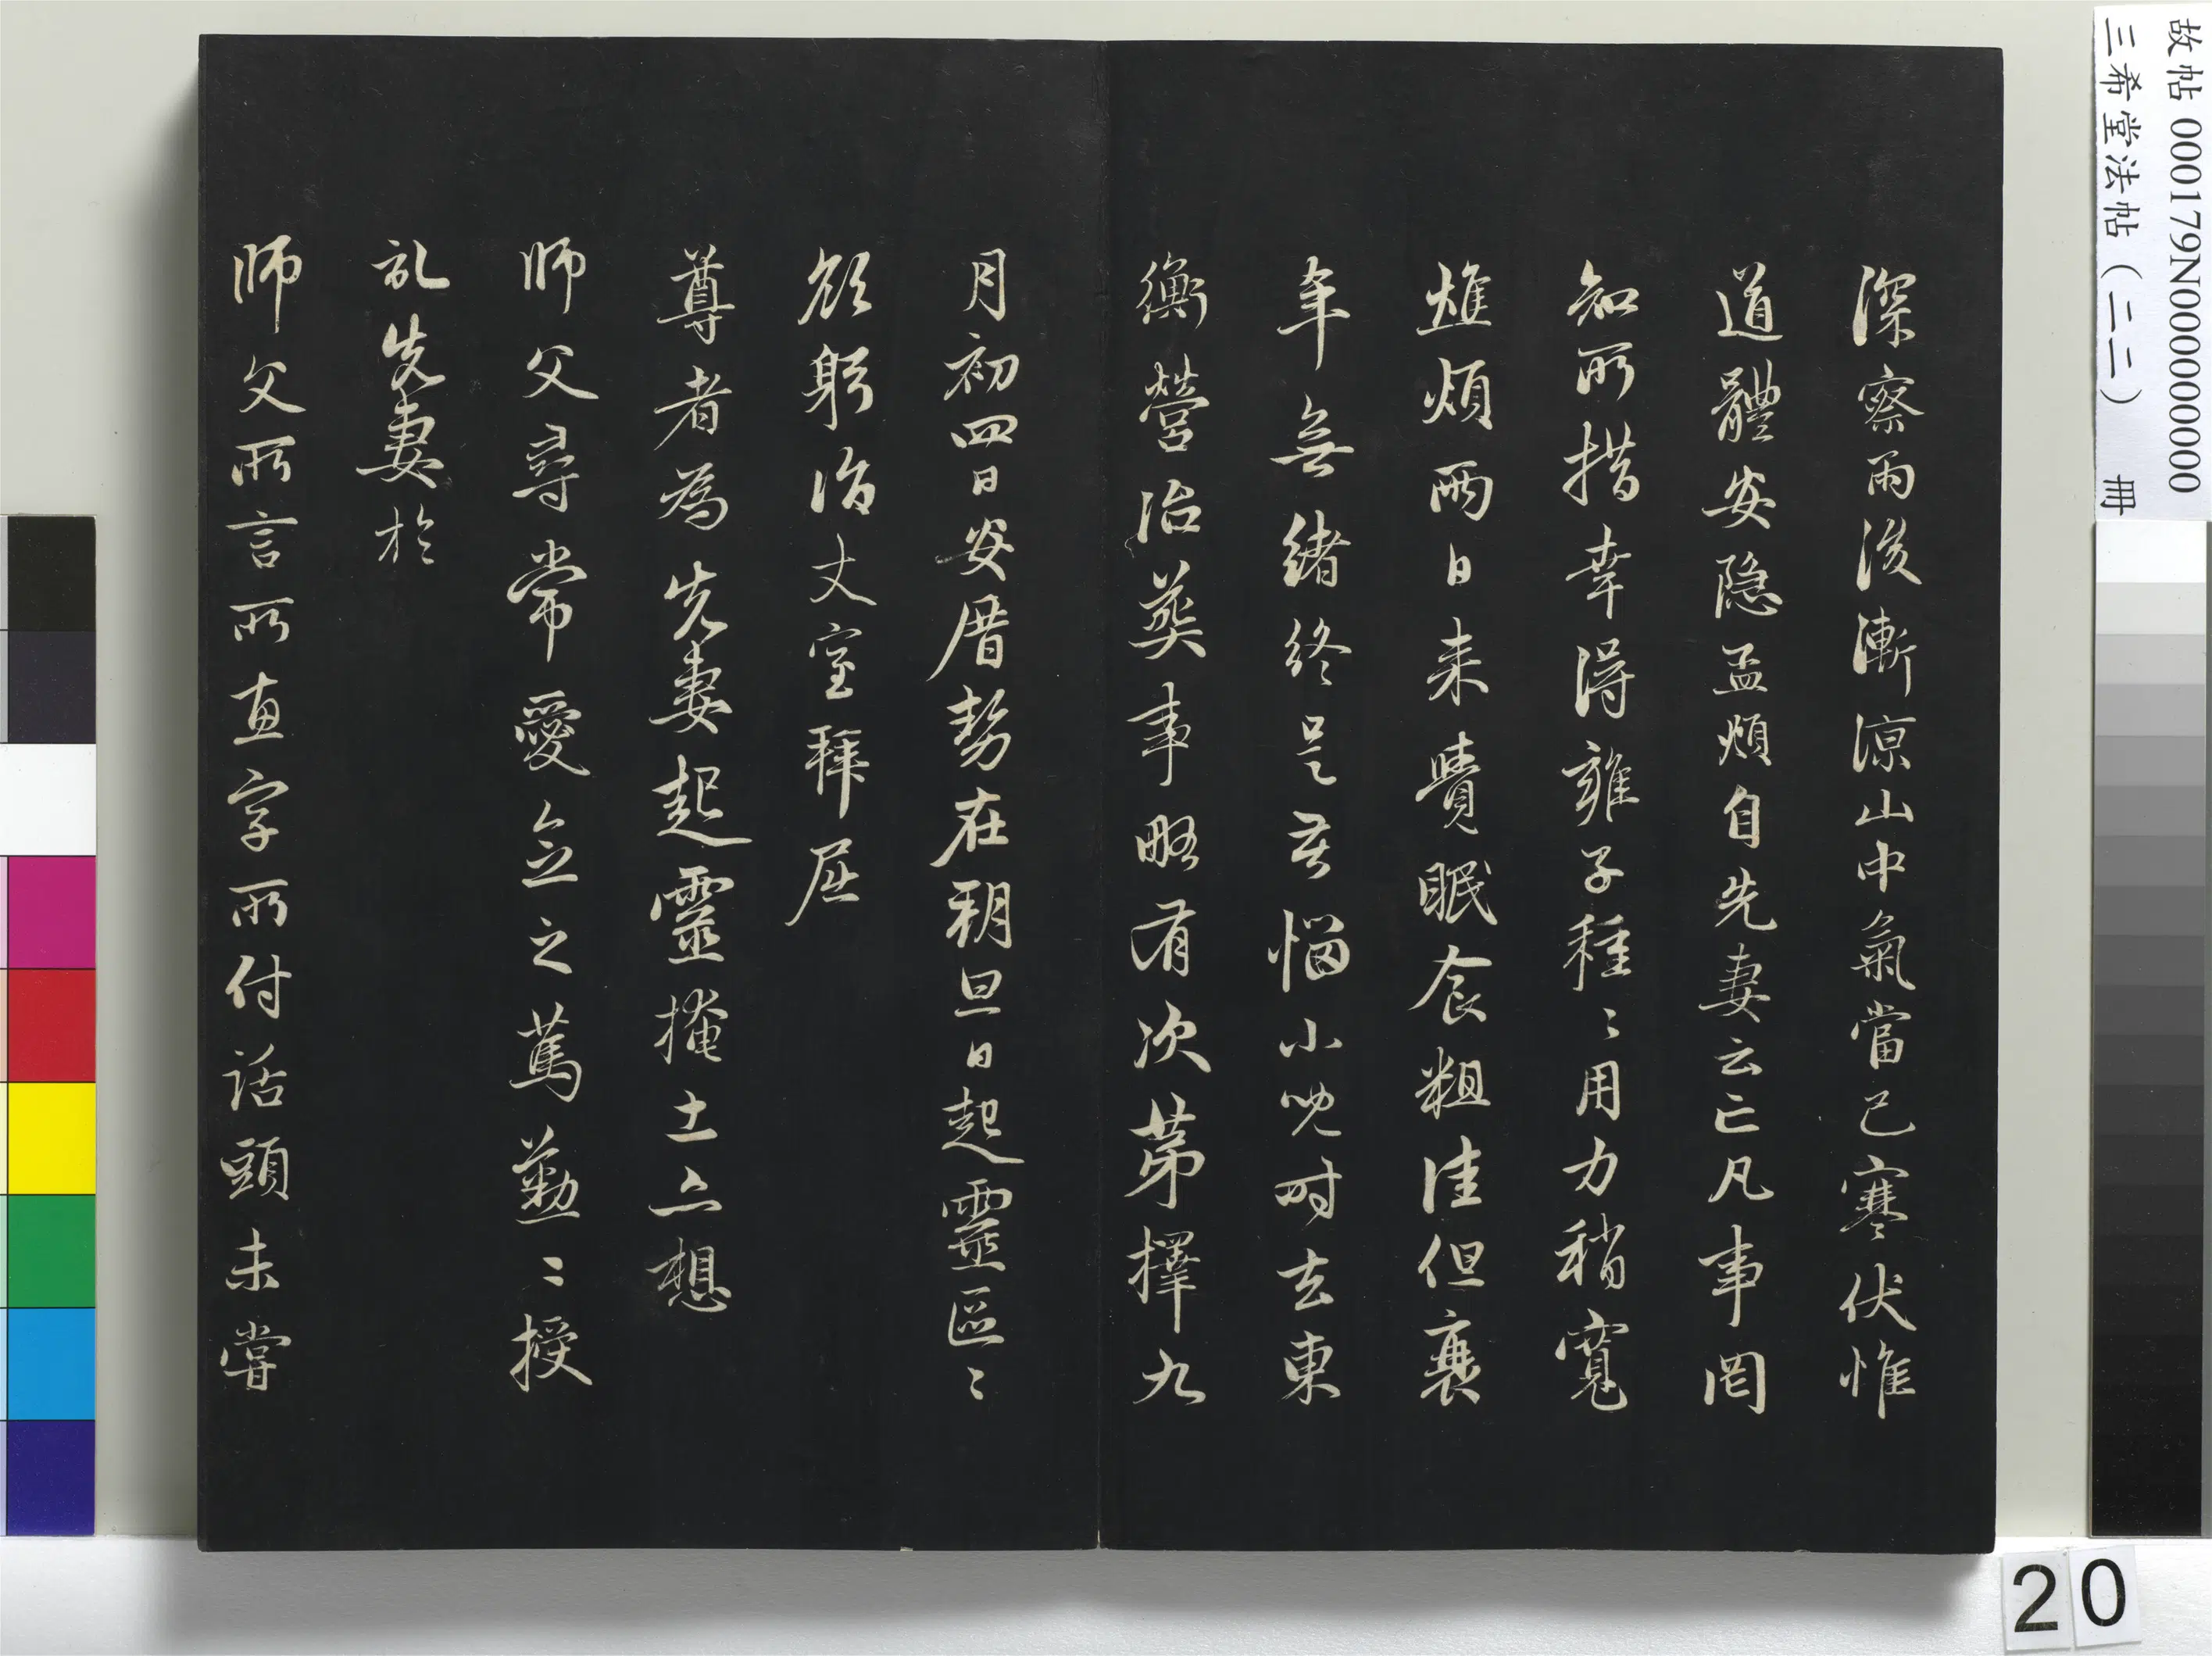 深察雨後漸涼山中氣當已寒伏惟
道體安隱孟頫自先妻云亡凡事罔
知所措幸得雍子種〻用力稍寬
燋煩兩日來覺眠食粗佳但衰
年無緒終是苦惱小兒時去東
衡營治葬事略有次第擇九
月初四日安厝勢在朔旦日起靈區〻
欲躬詣丈室拜屈
尊者為先妻起靈掩土亦想
師父尋常愛念之篤勤〻授
記先妻於
師父所言所畫字所付話頭未嘗
故帖 000179N000000000
三希堂法帖（二二） 冊
20